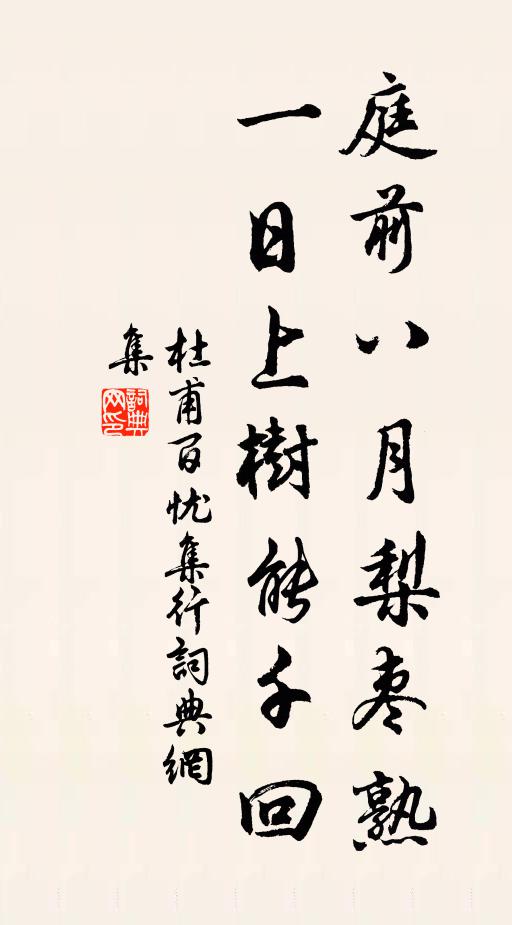 庭前八月梨枣熟
一日上樹能千回
杜甫百忧集行詞典網
集
詞典
网印